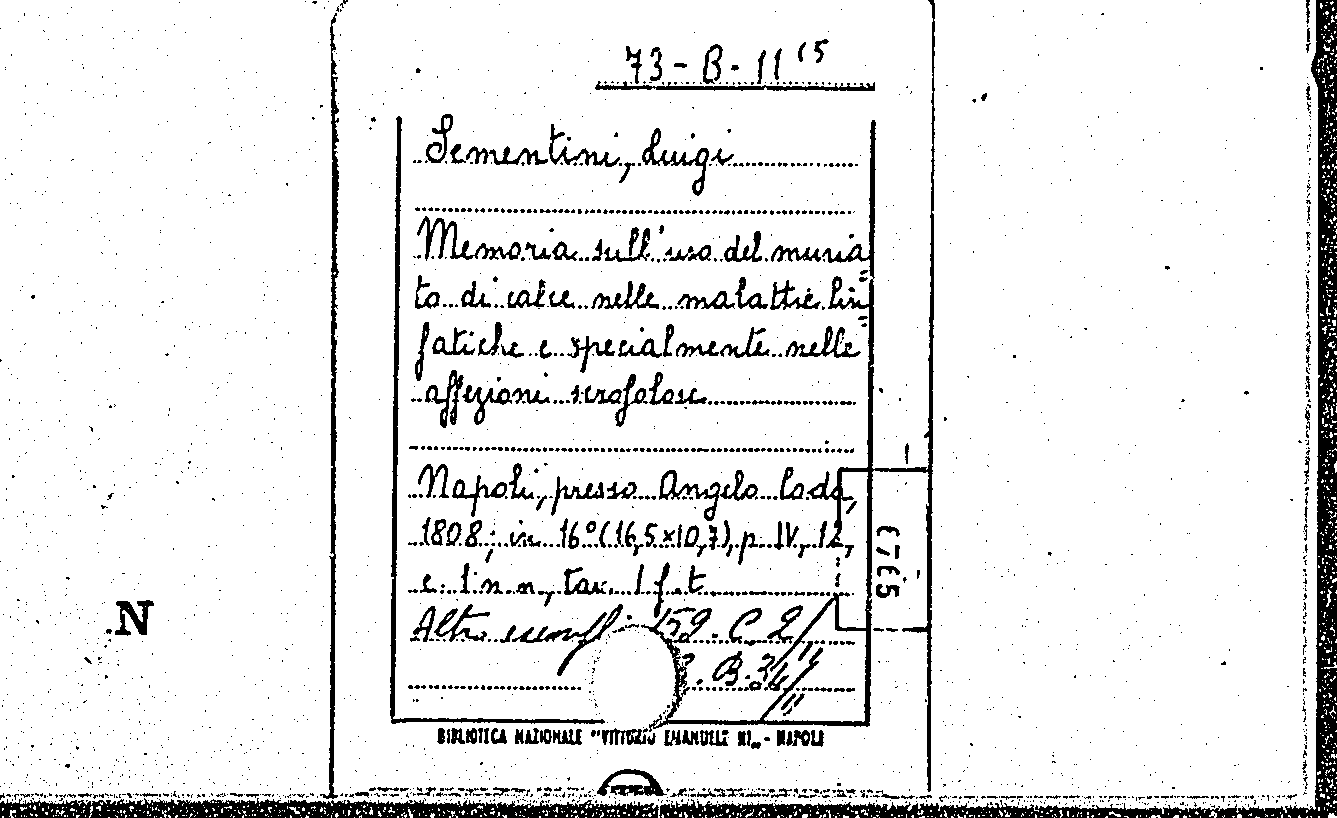 73-B-11 (5
Sementini, Luigi
Memoria sull'uso del muria
to di calce nelle malattie lin=
fatiche e specialmente nelle
affezioni scrofolose
Napoli, presso Angelo Coda,
1808; in 16° (16,5×10,7), p. IV, 12,
c. 1 n. n., tav. 1 f. t.
Altri esempl: 159. C. 2/11
. B. 34/11
BIBLIOTECA NAZIONALE "VITTORIO EMANUELE III„ - NAPOLI
N